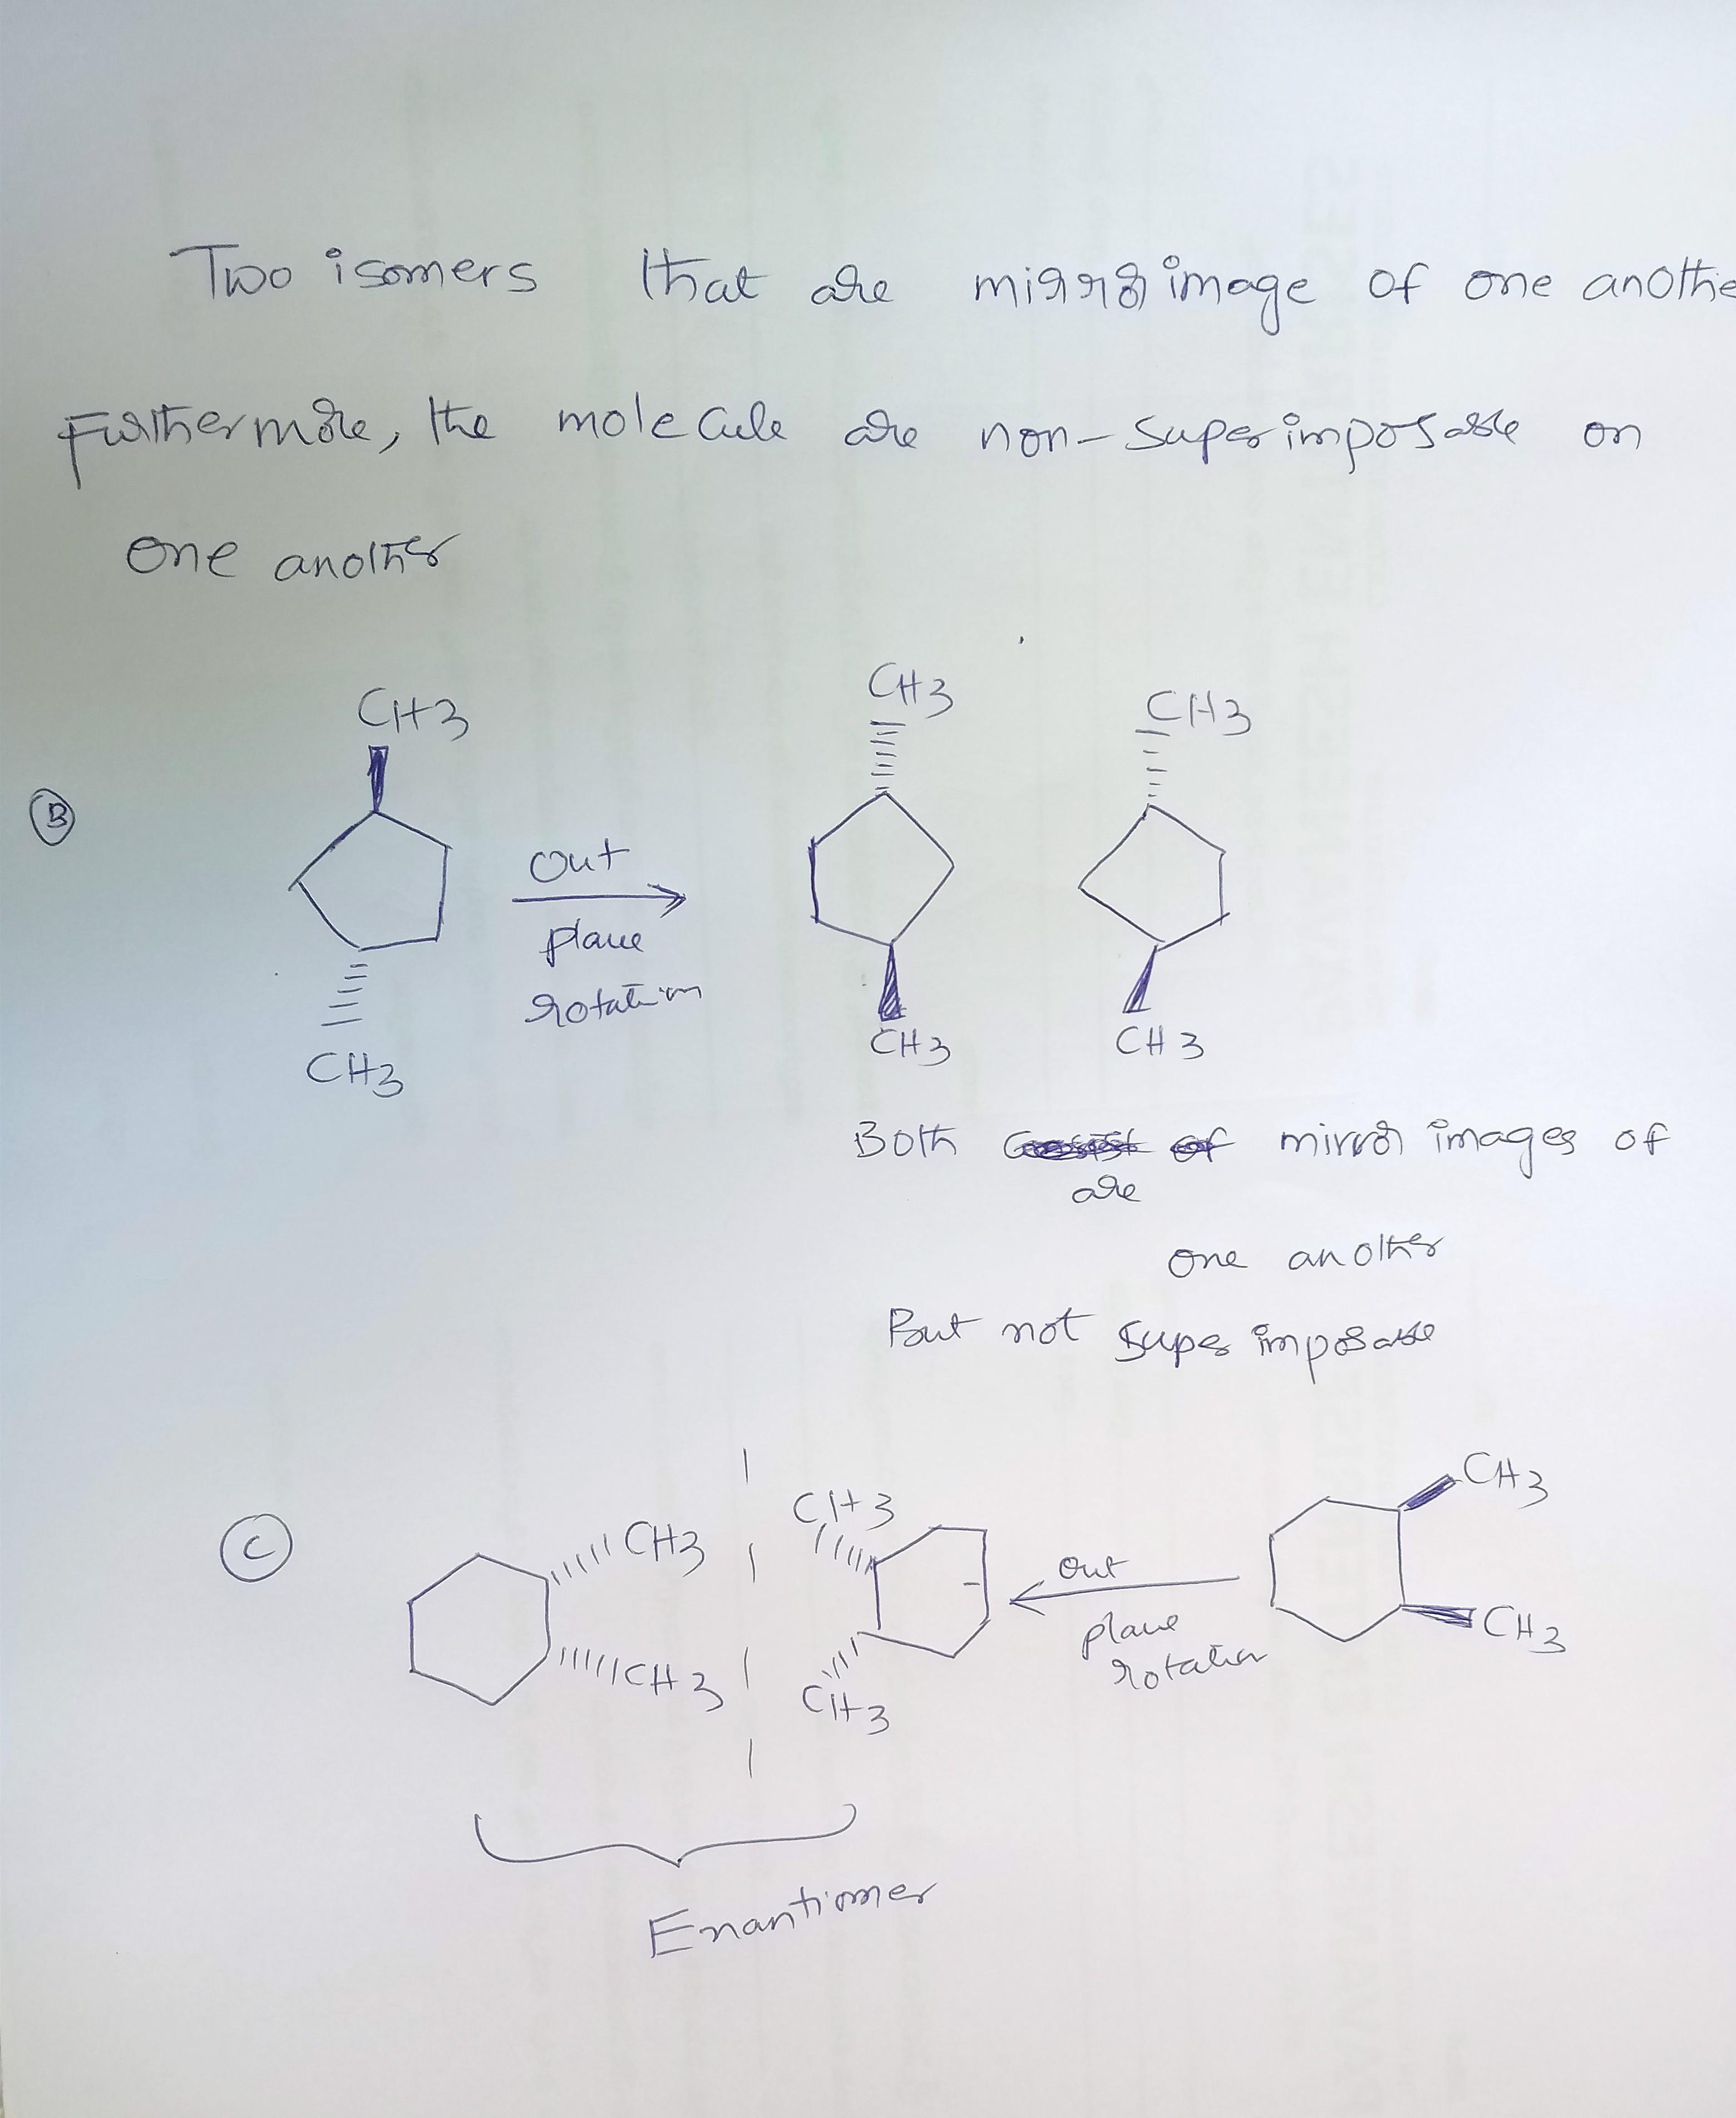 Two isomers that are mirror image of one anothe
Furthermore, the molecule are non-superimposable on
one another
CH3
CH3
CH3
B
out
plane
rotation
CH3
CH3
CH3
Both are mirror images of
one another
But not superimposable
C
CH3
CH3
CH3
CH3
out
plane
rotation
CH3
CH3
Enantiomer